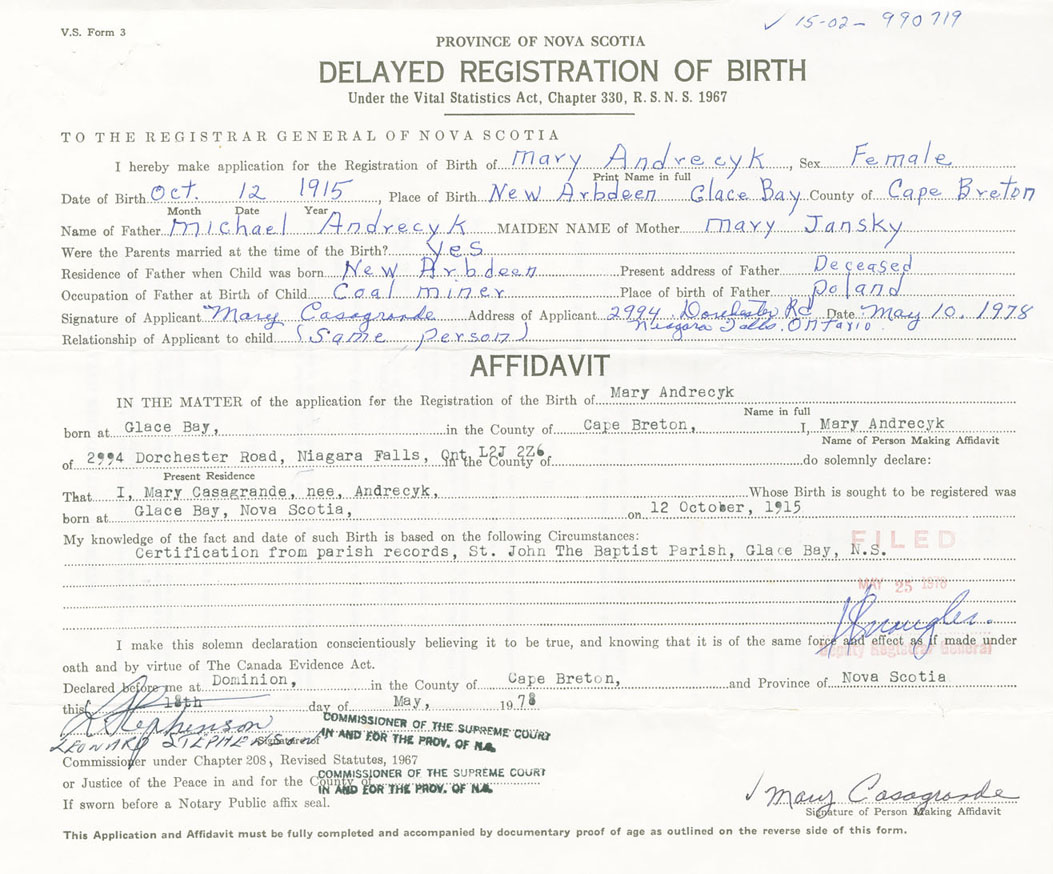 V.S. Form 3
✓ 15-02- 990719
PROVINCE OF NOVA SCOTIA
DELAYED REGISTRATION OF BIRTH
Under the Vital Statistics Act, Chapter 330, R. S. N. S. 1967
TO THE REGISTRAR GENERAL OF NOVA SCOTIA
I hereby make application for the Registration of Birth of Mary Andrecyk, Sex Female
Print Name in full
Date of Birth Oct. 12 1915, Place of Birth New Arbdeen Glace Bay County of Cape Breton
Month Date Year
Name of Father Michael Andrecyk MAIDEN NAME of Mother Mary Jansky
Were the Parents married at the time of the Birth? Yes
Residence of Father when Child was born New Arbdeen Present address of Father Deceased
Occupation of Father at Birth of Child Coal miner Place of birth of Father Poland
Signature of Applicant Mary Casagrande Address of Applicant 2994 Dorchester Rd Date May 10. 1978
Niagara Falls. Ontario.
Relationship of Applicant to child (Same Person)
AFFIDAVIT
IN THE MATTER of the application for the Registration of the Birth of Mary Andrecyk
Name in full
born at Glace Bay, in the County of Cape Breton, I, Mary Andrecyk
Name of Person Making Affidavit
of 2994 Dorchester Road, Niagara Falls, Ont. L2J 2Z6 in the County of do solemnly declare:
Present Residence
That I, Mary Casagrande, nee, Andrecyk, Whose Birth is sought to be registered was
born at Glace Bay, Nova Scotia, on 12 October, 1915
My knowledge of the fact and date of such Birth is based on the following Circumstances:
Certification from parish records, St. John The Baptist Parish, Glace Bay, N.S.
FILED
MAY 25 1978
I make this solemn declaration conscientiously believing it to be true, and knowing that it is of the same force and effect as if made under
Deputy Registrar General
oath and by virtue of The Canada Evidence Act.
Declared before me at Dominion, in the County of Cape Breton, and Province of Nova Scotia
this 18th day of May, 1978
L Stephenson
LEONARD STEPHENSON Signature of
COMMISSIONER OF THE SUPREME COURT
IN AND FOR THE PROV. OF N.S.
Commissioner under Chapter 208, Revised Statutes, 1967
or Justice of the Peace in and for the County of
COMMISSIONER OF THE SUPREME COURT
IN AND FOR THE PROV. OF N.S.
If sworn before a Notary Public affix seal.
✓ Mary Casagrande
Signature of Person Making Affidavit
This Application and Affidavit must be fully completed and accompanied by documentary proof of age as outlined on the reverse side of this form.